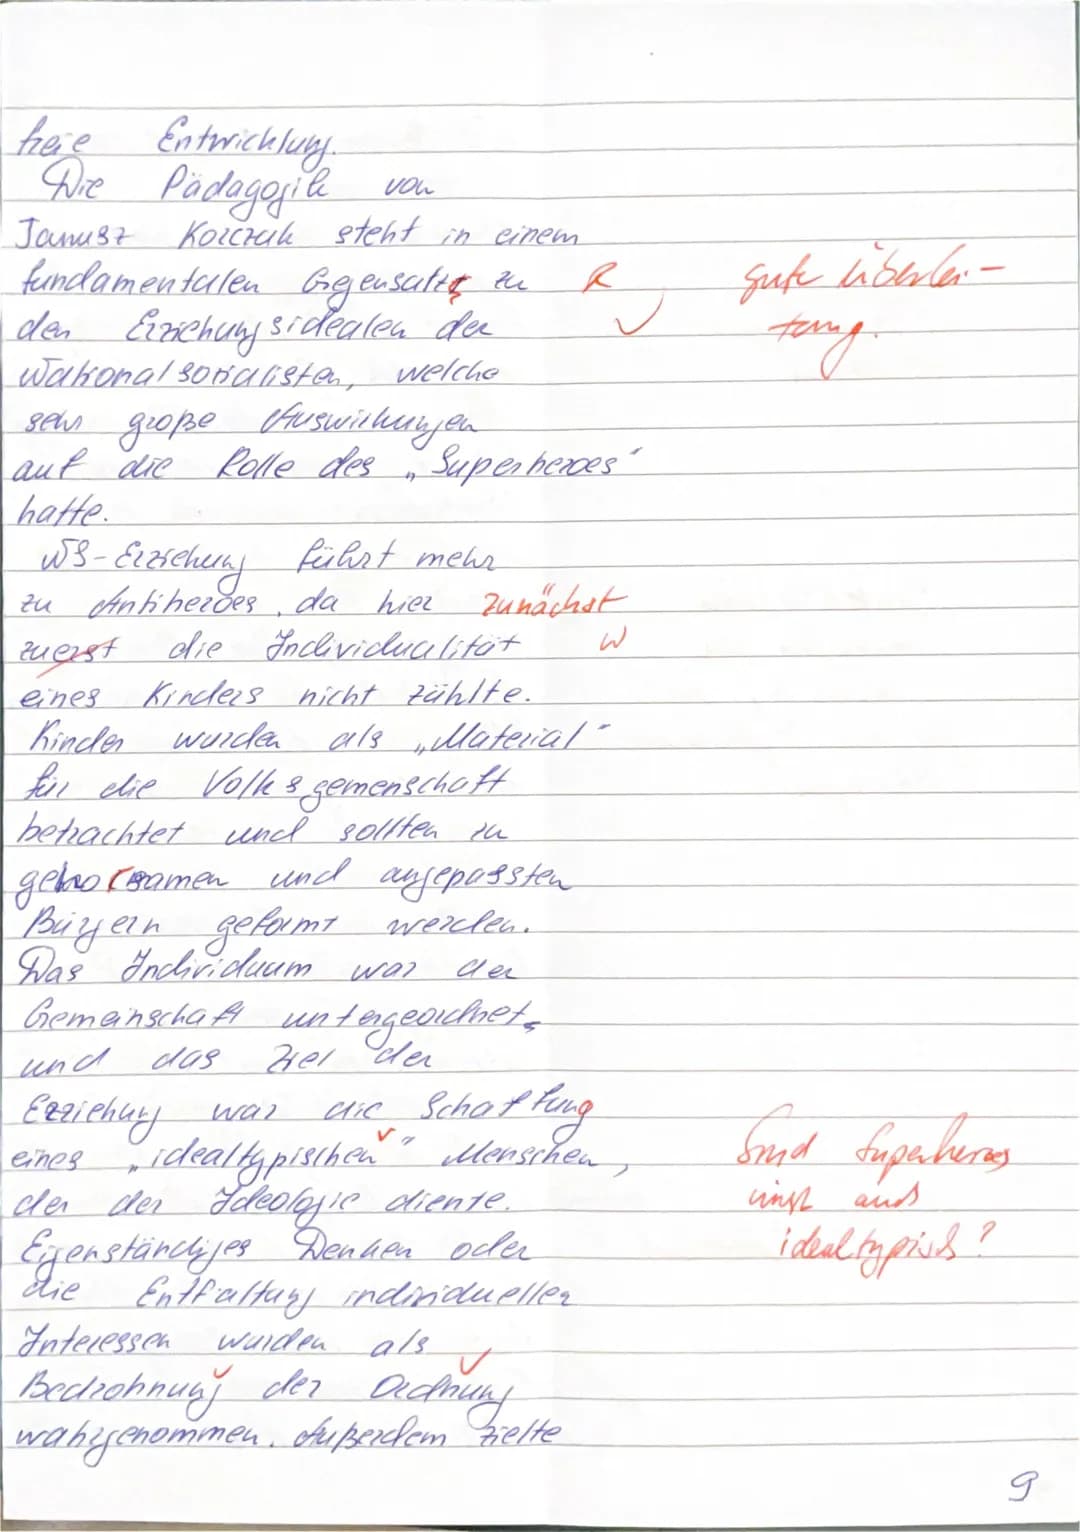 freie Entwicklung.
Die Pädagogik von
Janusz Korczak steht in einem
fundamentalen Gegensatz zu R gute Überlei-
den Erziehungsidealen der tung.
Nationalsozialisten, welche
sehr große Auswirkungen
auf die Rolle des „Superheroes"
hatte.
NS-Erziehung führt mehr
zu Antiheroes, da hier zunächst
zuerst die Individualität W
eines Kinders nicht zählte.
Kinder wurden als „Material"
für die Volksgemenschaft
betrachtet und sollten zu
gehorsamen und angepassten
Bürgern geformt werden.
Das Individuum war der
Gemeinschaft untergeordnet,
und das Ziel der
Erziehung war die Schaffung
eines „idealtypischen" Menschen, Sind Superheroes
der der Ideologie diente. auch
Eigenständiges Denken oder idealtypisch?
die Entfaltung individueller
Interessen wurden als
Bedrohnung der Ordnung
wahrgenommen. Außerdem zielte
9